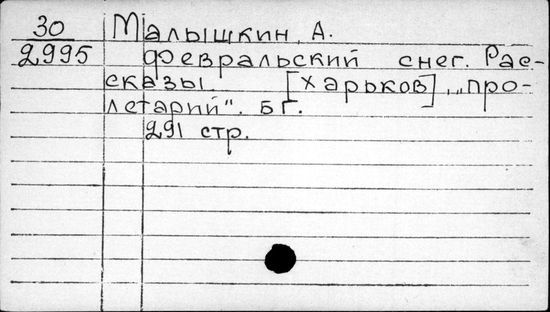 30 Малышкин, А.
2995 Февральский снег. Рас-
сказы. [Харьков], „Про-
летарий". БГ.
291 стр.